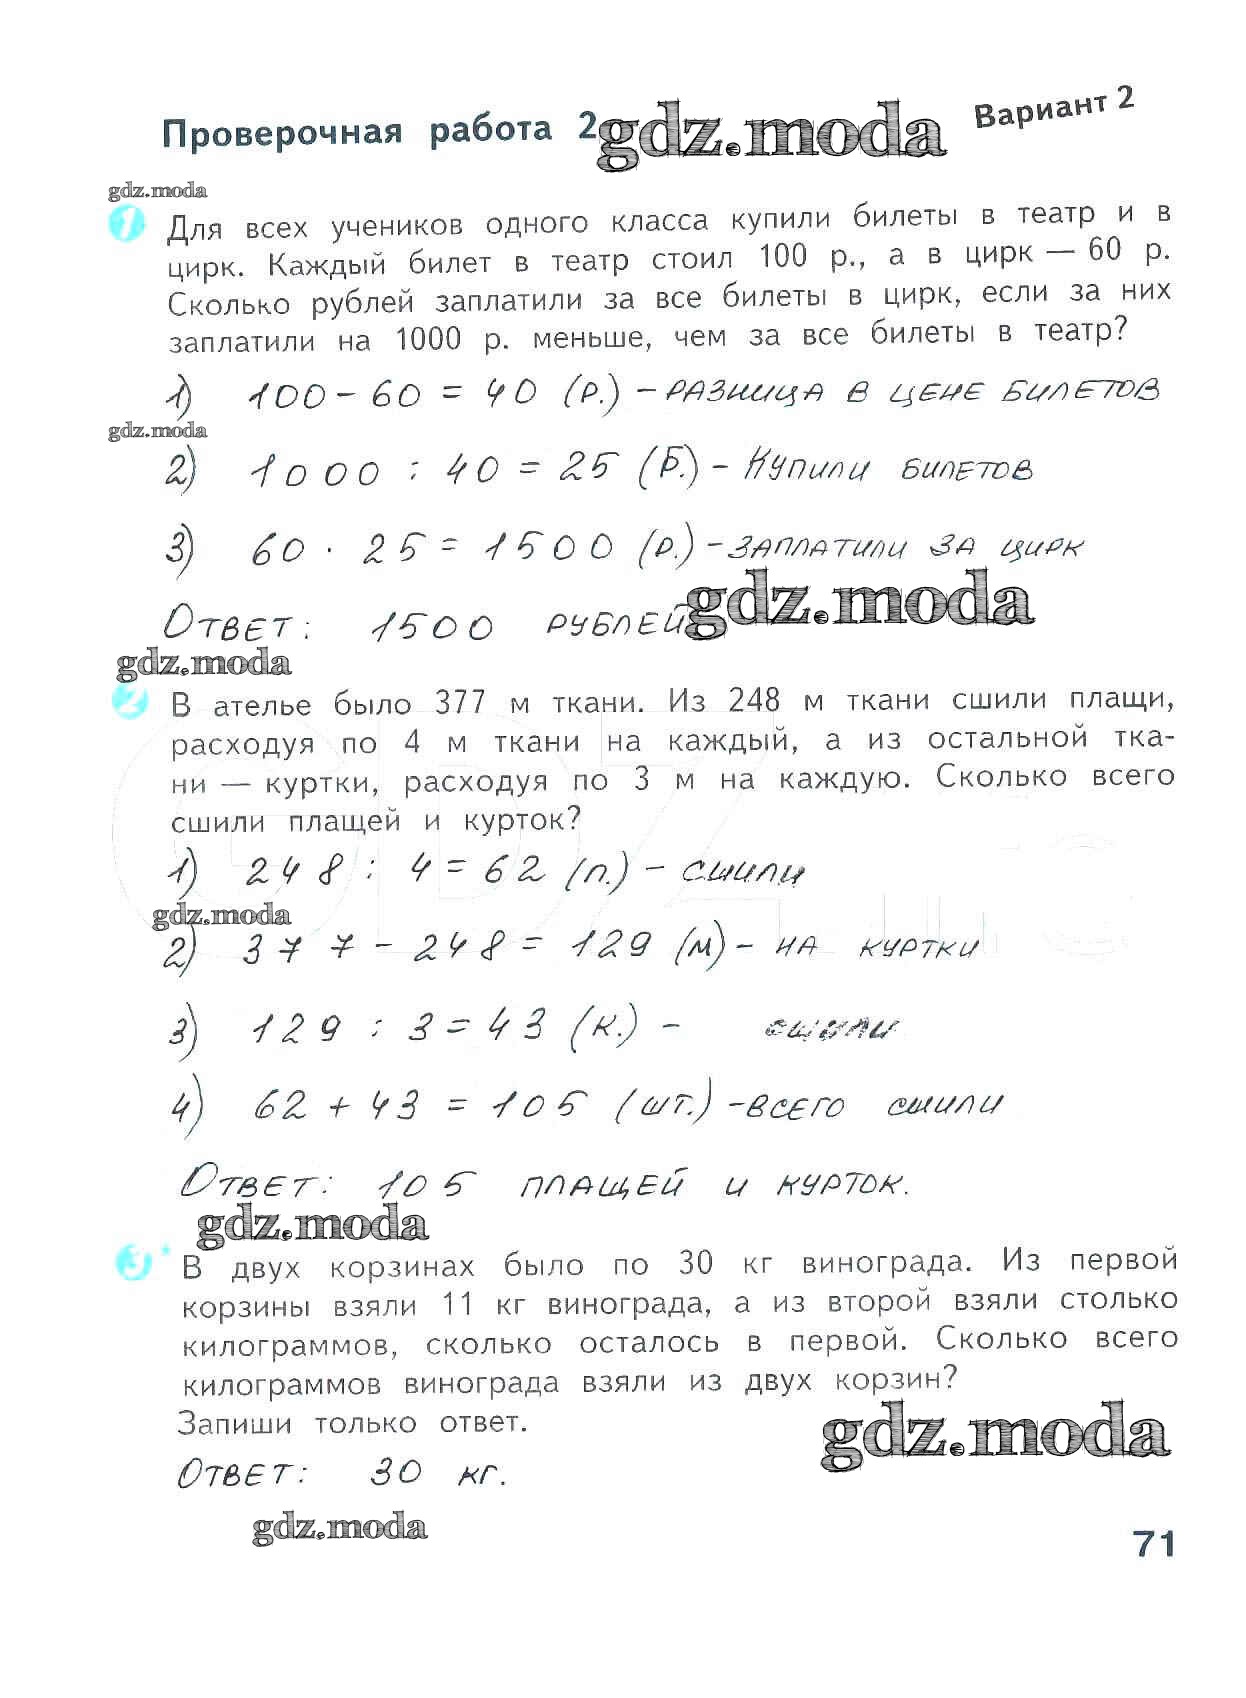 Проверочная работа 2 gdz.moda Вариант 2
gdz.moda
1 Для всех учеников одного класса купили билеты в театр и в
цирк. Каждый билет в театр стоил 100 р., а в цирк — 60 р.
Сколько рублей заплатили за все билеты в цирк, если за них
заплатили на 1000 р. меньше, чем за все билеты в театр?
1) 100 - 60 = 40 (р.) - разница в цене билетов
gdz.moda
2) 1000 : 40 = 25 (б.) - купили билетов
3) 60 · 25 = 1500 (р.) - заплатили за цирк
Ответ: 1500 рублей gdz.moda
gdz.moda
2 В ателье было 377 м ткани. Из 248 м ткани сшили плащи,
расходуя по 4 м ткани на каждый, а из остальной тка-
ни — куртки, расходуя по 3 м на каждую. Сколько всего
сшили плащей и курток?
1) 248 : 4 = 62 (п.) - сшили
gdz.moda
2) 377 - 248 = 129 (м) - на куртки
3) 129 : 3 = 43 (к.) - сшили
4) 62 + 43 = 105 (шт.) - всего сшили
Ответ: 105 плащей и курток.
gdz.moda
3* В двух корзинах было по 30 кг винограда. Из первой
корзины взяли 11 кг винограда, а из второй взяли столько
килограммов, сколько осталось в первой. Сколько всего
килограммов винограда взяли из двух корзин?
Запиши только ответ.
gdz.moda
Ответ: 30 кг.
gdz.moda
71